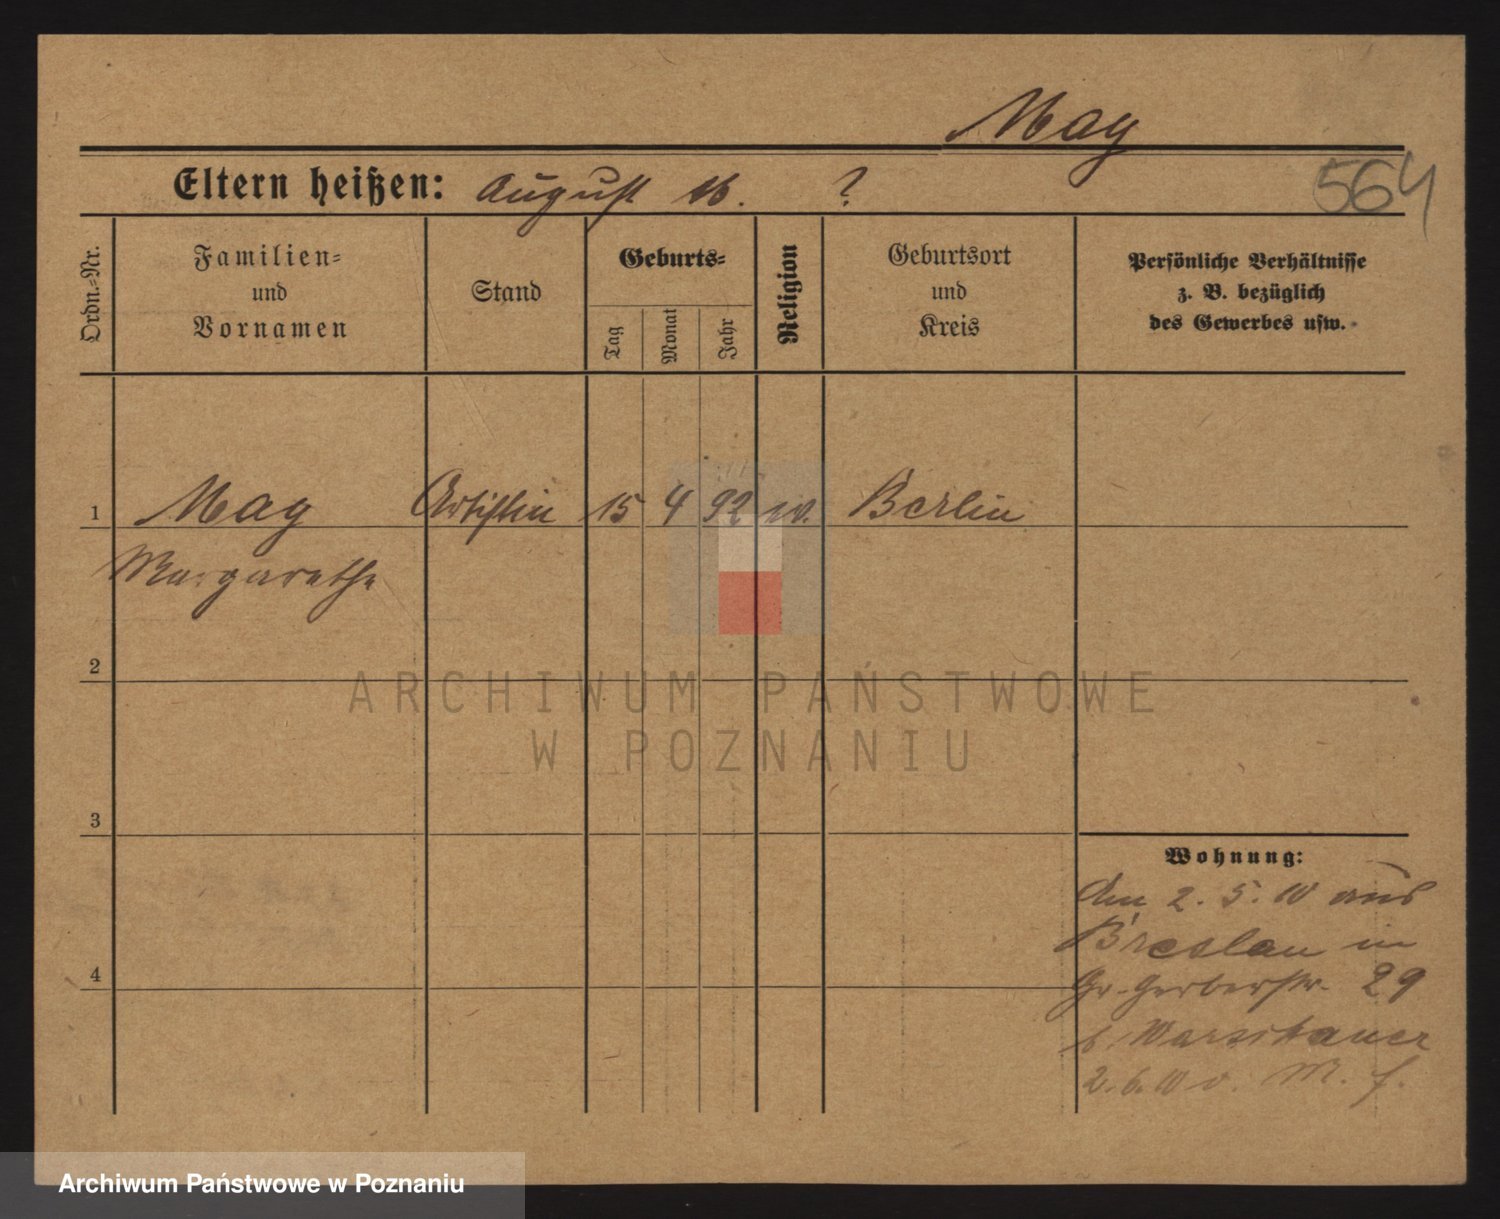 May
564
Eltern heißen: August ?
Ordn.-Nr.
Familien-
und
Vornamen
Stand
Geburts-
Tag
Monat
Jahr
Religion
Geburtsort
und
Kreis
Persönliche Verhältnisse
z. B. bezüglich
des Gewerbes usw.
1 May Artistin 15 4 92 ev. Berlin
Margarethe
2
ARCHIWUM PAŃSTWOWE
W POZNANIU
3
Wohnung:
Am 2. 5. 10 aus
Breslau in
4
Gr. Gerberstr. 29
b. Warschauer
2. 6. 10 v. M. f.
Archiwum Państwowe w Poznaniu